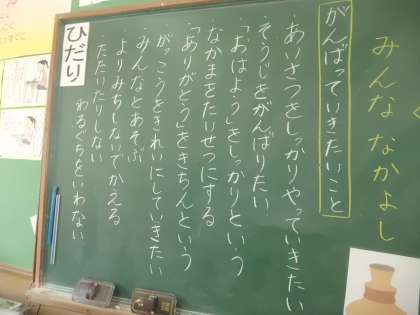 みんな なかよし
がんばっていきたいこと
・あいさつをしっかりやっていきたい
・そうじをがんばりたい
・「おはよう」をしっかりという
・なかまをたいせつにする
・「ありがとう」をきちんという
・がっこうをきれいにしていきたい
・みんなとあそぶ
・よりみちしないでかえる
・たたいたりしない
わるぐちをいわない
ひだり